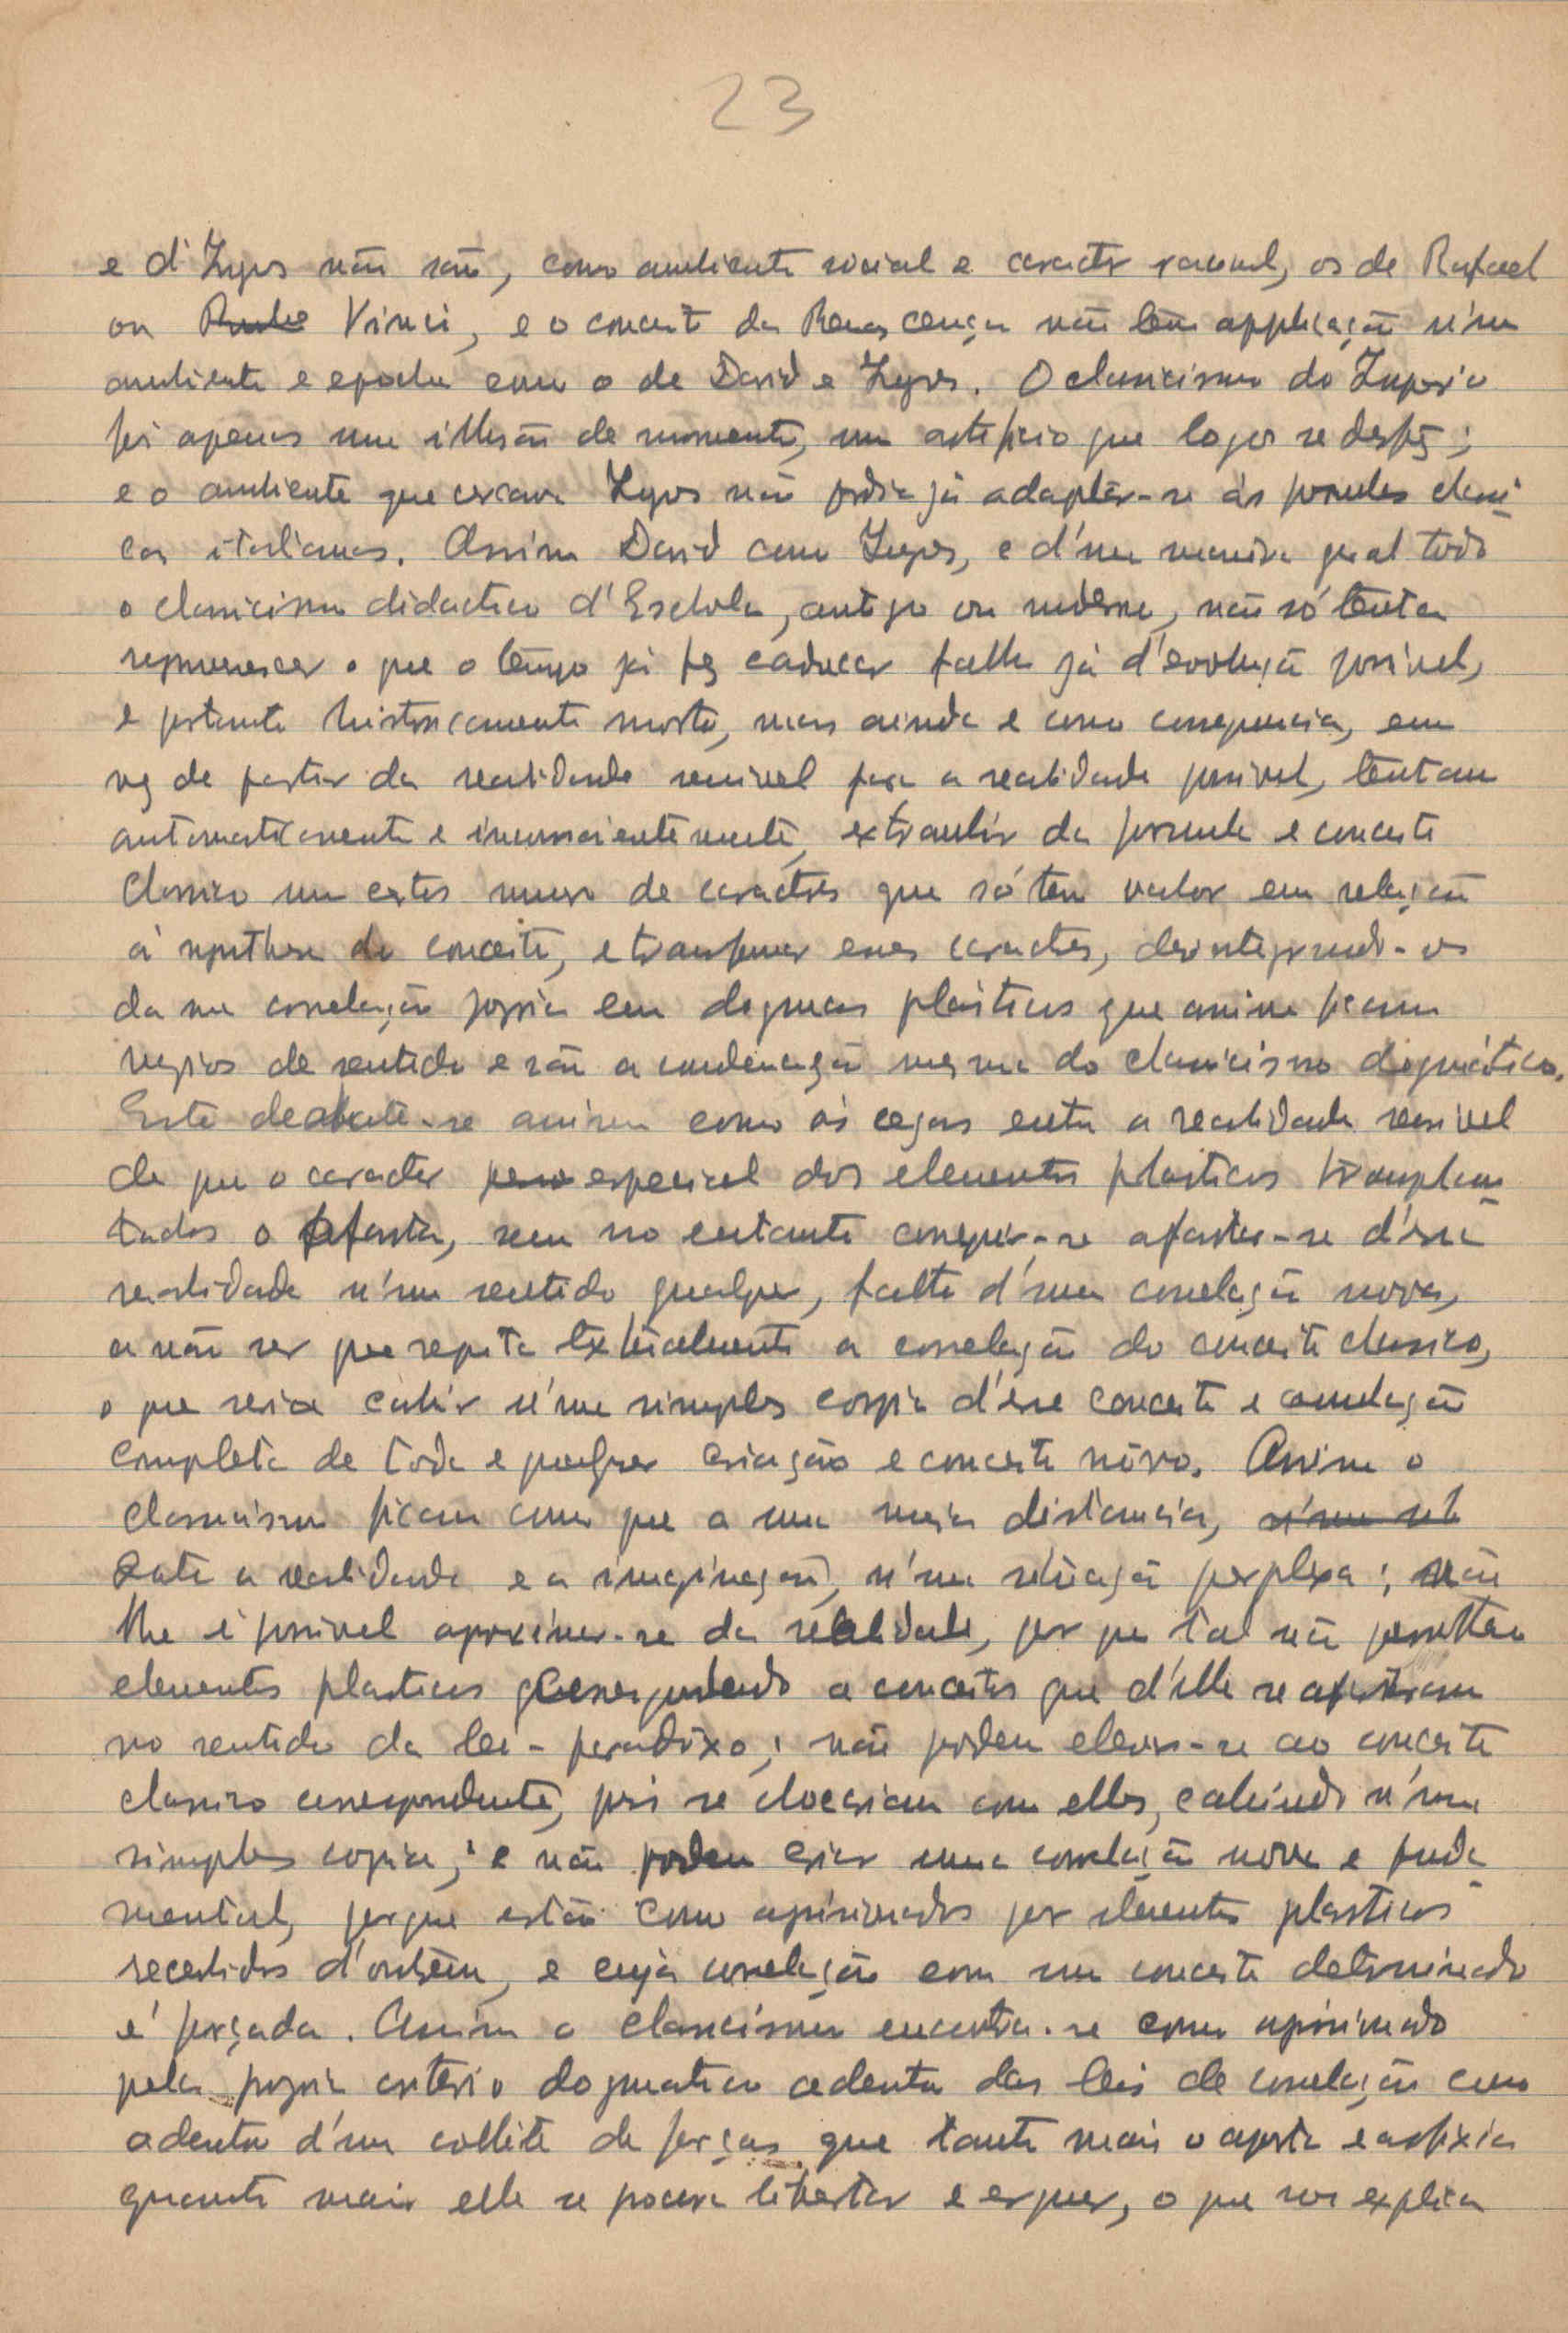 23
e d'Ingres não são, como ambiente social e caracter racional, os de Rafael
ou Vinci, e o conceito da Renascença não têm applicação n'um
ambiente e epocha como o de David e Ingres. O classicismo do Imperio
foi apenas uma illusão de momento, um artificio que logo se desfez;
e o ambiente que cercava Ingres não podia já adaptar-se ás formulas classi-
cas italianas. Assim David como Ingres, e d'uma maneira geral todo
o classicismo didactico d'Eschola, antigo ou moderno, não só tenta
o que o tempo já fez caducar falho já d'evolução possivel,
e portanto historicamente morto, mas ainda e como consequencia, em
vez de partir da realidade sensivel para a realidade possivel, tentam
automaticamente e inconscientemente, extrahir da formula e conceito
classico um certo numero de caractres que só tem valor em relação
á synthese do conceito, e transformar esses caractres, desintegrando-os
da sua correlação propria em dogmas plásticos que assim ficam
vazios de sentido e são a condenação mesma do classicismo dogmático.
Este debate-se assim como ás cegas entre a realidade sensivel
de que o caracter especial dos elementos plasticos transplan-
tados o afasta, sem no entanto conseguir-se afastar-se d'essa
realidade n'um sentido qualquer, falto d'uma correlação nova,
a não ser que repita textualmente a correlação do conceito classico,
o que seria cahir n'uma simples copia d'esse conceito e anulação
completa de toda e qualquer criação e conceito nôvo. Assim o
classicismo ficam como que a uma meia distancia,
Entre a realidade e a imaginação, n'uma situação perplexa; não
lhe é possivel aproximar-se da realidade, por que tal não permittem
elementos plasticos correspondendo a conceitos que d'ella se afastaram
no sentido da lei-paradoxo; não podem elevar-se ao conceito
classico correspondente, pois se chocariam com elles, cahindo n'uma
simples copia; e não podem criar uma correlação nova e funda-
mental, porque estão como aprisionados por elementos plasticos
recebidos d'outrem, e cuja correlação com um conceito determinado
é forçada. Assim o classicismo encontra-se como aprisionado
pelo proprio criterio dogmatico adentro das leis de correlação como
adentro d'um collete de forças que tanto mais o aperta e asfixia
quanto mais elle se procura libertar e erguer, o que nos explica